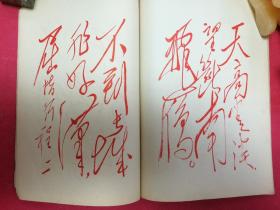 天高云淡，
望断南
飛雁。
不到長城
非好漢，
屈指行程二